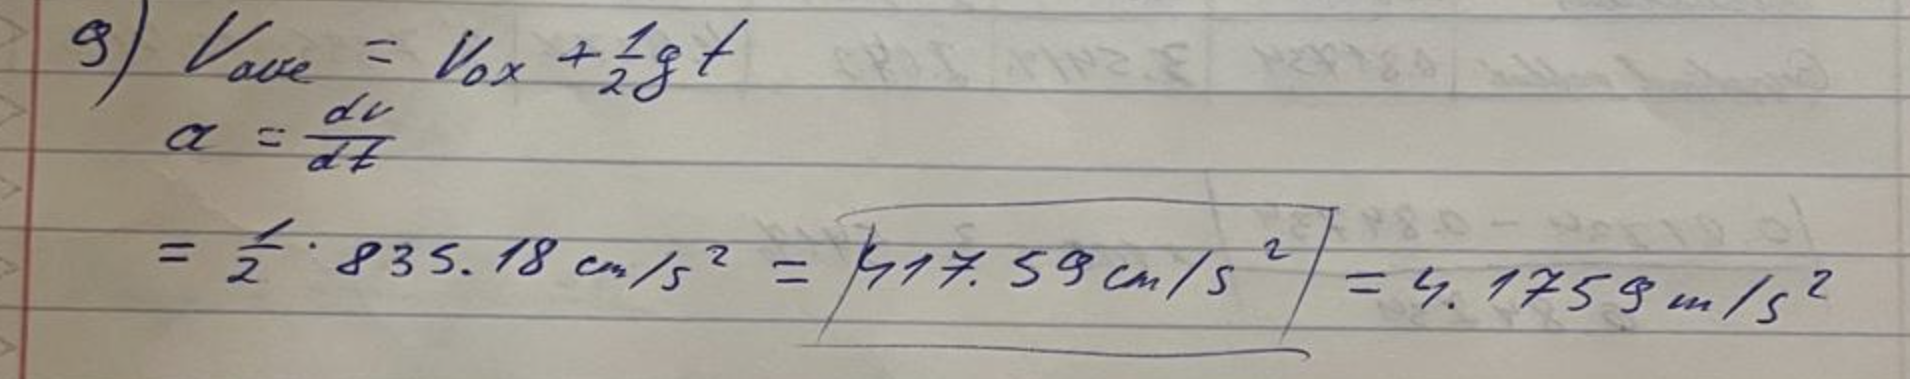 9) Vave = Vox + 1/2 g t
a = dv/dt
= 1/2 · 835.18 cm/s² = 417.59 cm/s² = 4.1759 m/s²